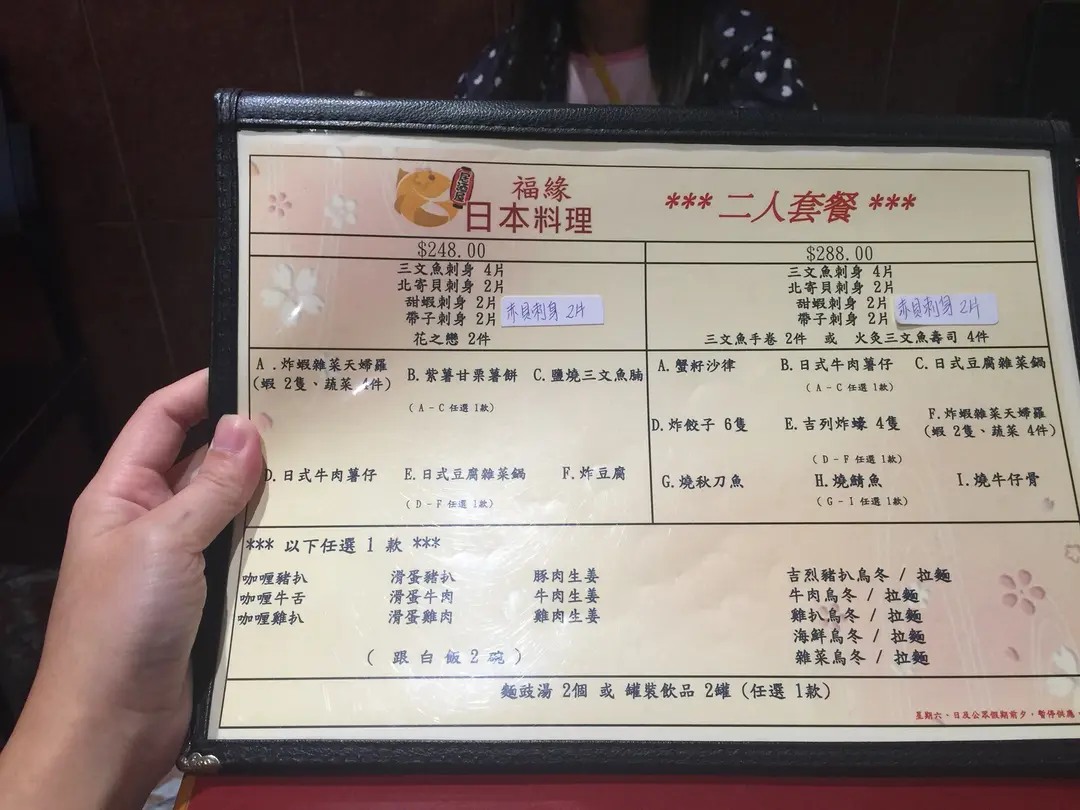 居酒屋
福緣
日本料理
*** 二人套餐 ***
$248.00
三文魚刺身 4片
北寄貝刺身 2片
甜蝦刺身 2片
帶子刺身 2片
赤貝刺身 2片
花之戀 2件
A .炸蝦雜菜天婦羅
(蝦 2隻、蔬菜 4件)
B.紫薯甘栗薯餅
C.鹽燒三文魚腩
(A-C 任選 1款)
D.日式牛肉薯仔
E.日式豆腐雜菜鍋
F.炸豆腐
(D-F 任選 1款)
$288.00
三文魚刺身 4片
北寄貝刺身 2片
甜蝦刺身 2片
帶子刺身 2片
赤貝刺身 2片
三文魚手卷 2件 或 火灸三文魚壽司 4件
A.蟹籽沙律
B.日式牛肉薯仔
C.日式豆腐雜菜鍋
(A-C 任選 1款)
D.炸餃子 6隻
E.吉列炸蠔 4隻
F.炸蝦雜菜天婦羅
(蝦 2隻、蔬菜 4件)
(D-F 任選 1款)
G.燒秋刀魚
H.燒鯖魚
I.燒牛仔骨
(G-I 任選 1款)
*** 以下任選 1 款 ***
咖喱豬扒
咖喱牛舌
咖喱雞扒
滑蛋豬扒
滑蛋牛肉
滑蛋雞肉
豚肉生姜
牛肉生姜
雞肉生姜
吉烈豬扒烏冬 / 拉麵
牛肉烏冬 / 拉麵
雞扒烏冬 / 拉麵
海鮮烏冬 / 拉麵
雜菜烏冬 / 拉麵
( 跟 白 飯 2 碗 )
麵豉湯 2個 或 罐裝飲品 2罐 (任選 1款)
星期六、日及公眾假期前夕，暫停供應